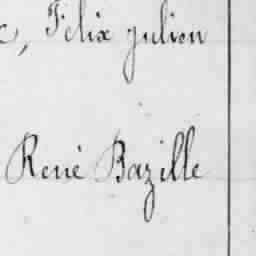 c, Félix julien
René Bazille